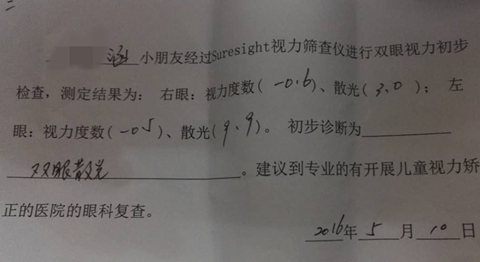 涵 小朋友经过Suresight视力筛查仪进行双眼视力初步
检查，测定结果为： 右眼：视力度数(-0.6)、散光(3.0)； 左
眼：视力度数(-0.5)、散光(9.9)。 初步诊断为
双眼散光。建议到专业的有开展儿童视力矫
正的医院的眼科复查。
2016年5月10日